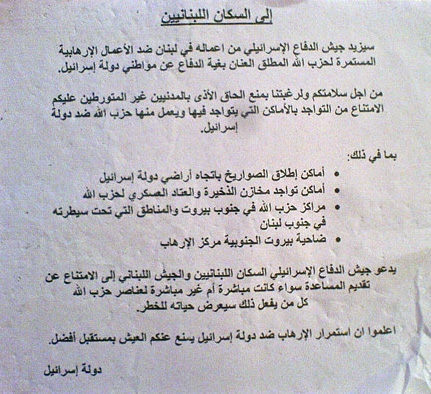 إلى السكان اللبنانيين
سيزيد جيش الدفاع الإسرائيلي من اعماله في لبنان ضد الأعمال الإرهابية
المستمرة لحزب الله المطلق العنان بغية الدفاع عن مواطني دولة إسرائيل.
من اجل سلامتكم ولرغبتنا بمنع الحاق الأذى بالمدنيين غير المتورطين عليكم
الامتناع من التواجد بالأماكن التي يتواجد فيها ويعمل منها حزب الله ضد دولة
إسرائيل.
بما في ذلك:
• أماكن إطلاق الصواريخ باتجاه أراضي دولة إسرائيل
• أماكن تواجد مخازن الذخيرة والعتاد العسكري لحزب الله
• مراكز حزب الله في جنوب بيروت والمناطق التي تحت سيطرته
في جنوب لبنان
• ضاحية بيروت الجنوبية مركز الإرهاب
يدعو جيش الدفاع الإسرائيلي السكان اللبنانيين والجيش اللبناني إلى الامتناع عن
تقديم المساعدة سواء كانت مباشرة أم غير مباشرة لعناصر حزب الله
كل من يفعل ذلك سيعرض حياته للخطر.
اعلموا ان استمرار الإرهاب ضد دولة إسرائيل يسنع عنكم العيش بمستقبل أفضل.
دولة إسرائيل